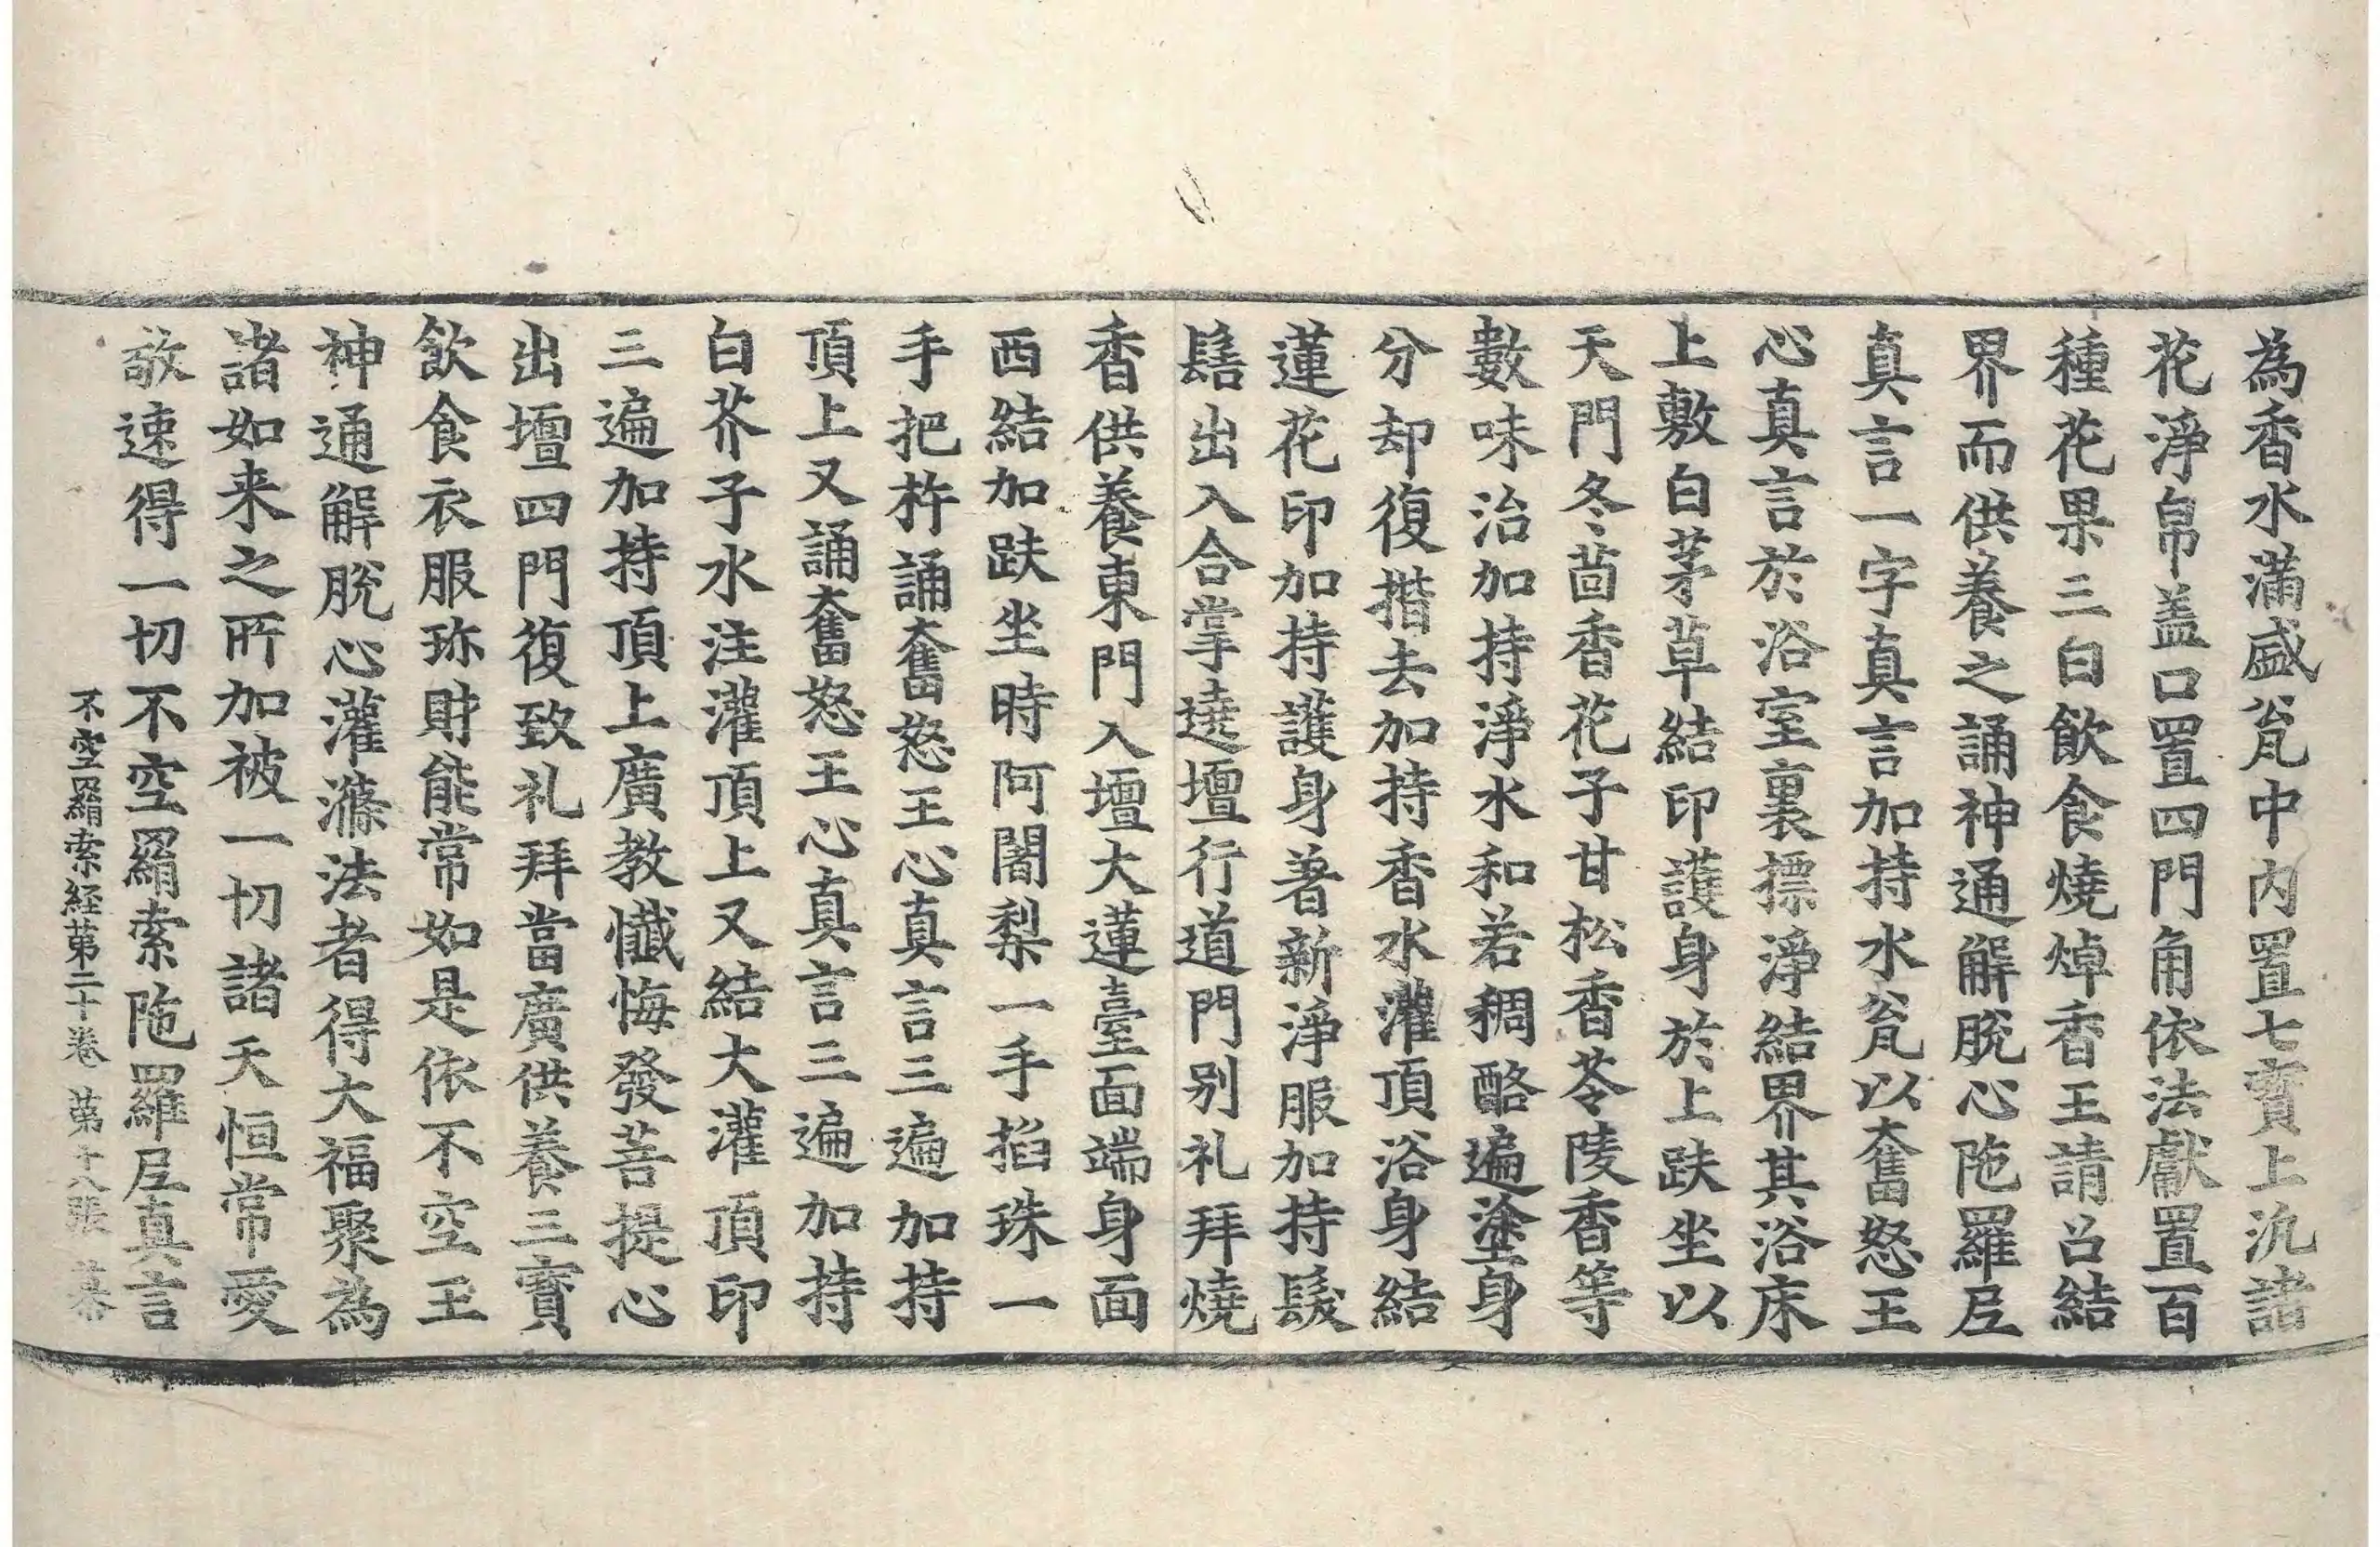 為香水滿盛瓫中內置七寳上泛諸
花淨帛盖口置四門角依法獻置百
種花果三白飲食燒焯香王請召結
界而供養之誦神通解脫心陁羅尼
真言一字真言加持水瓫以奮怒王
心真言於浴室裏摽淨結界其浴床
上敷白茅草結印護身於上趺坐以
天門冬茴香花子甘松香苓陵香等
數味治加持淨水和若稠酪遍塗身
分却復揩去加持香水灌頂浴身結
蓮花印加持護身著新淨服加持髮
髻出入合掌遶壇行道門別礼拜燒
香供養東門入壇大蓮臺面端身面
西結加趺坐時阿闍梨一手掐珠一
手把杵誦奮怒王心真言三遍加持
頂上又誦奮怒王心真言三遍加持
白芥子水注灌頂上又結大灌頂印
三遍加持頂上廣教懺悔發菩提心
出壇四門復致礼拜當廣供養三寳
飲食衣服珎財能常如是依不空王
神通解脫心灌滌法者得大福聚為
諸如来之所加被一切諸天恒常愛
敬速得一切不空羂索陁羅尼真言
不空羂索経第二十卷 第十八張